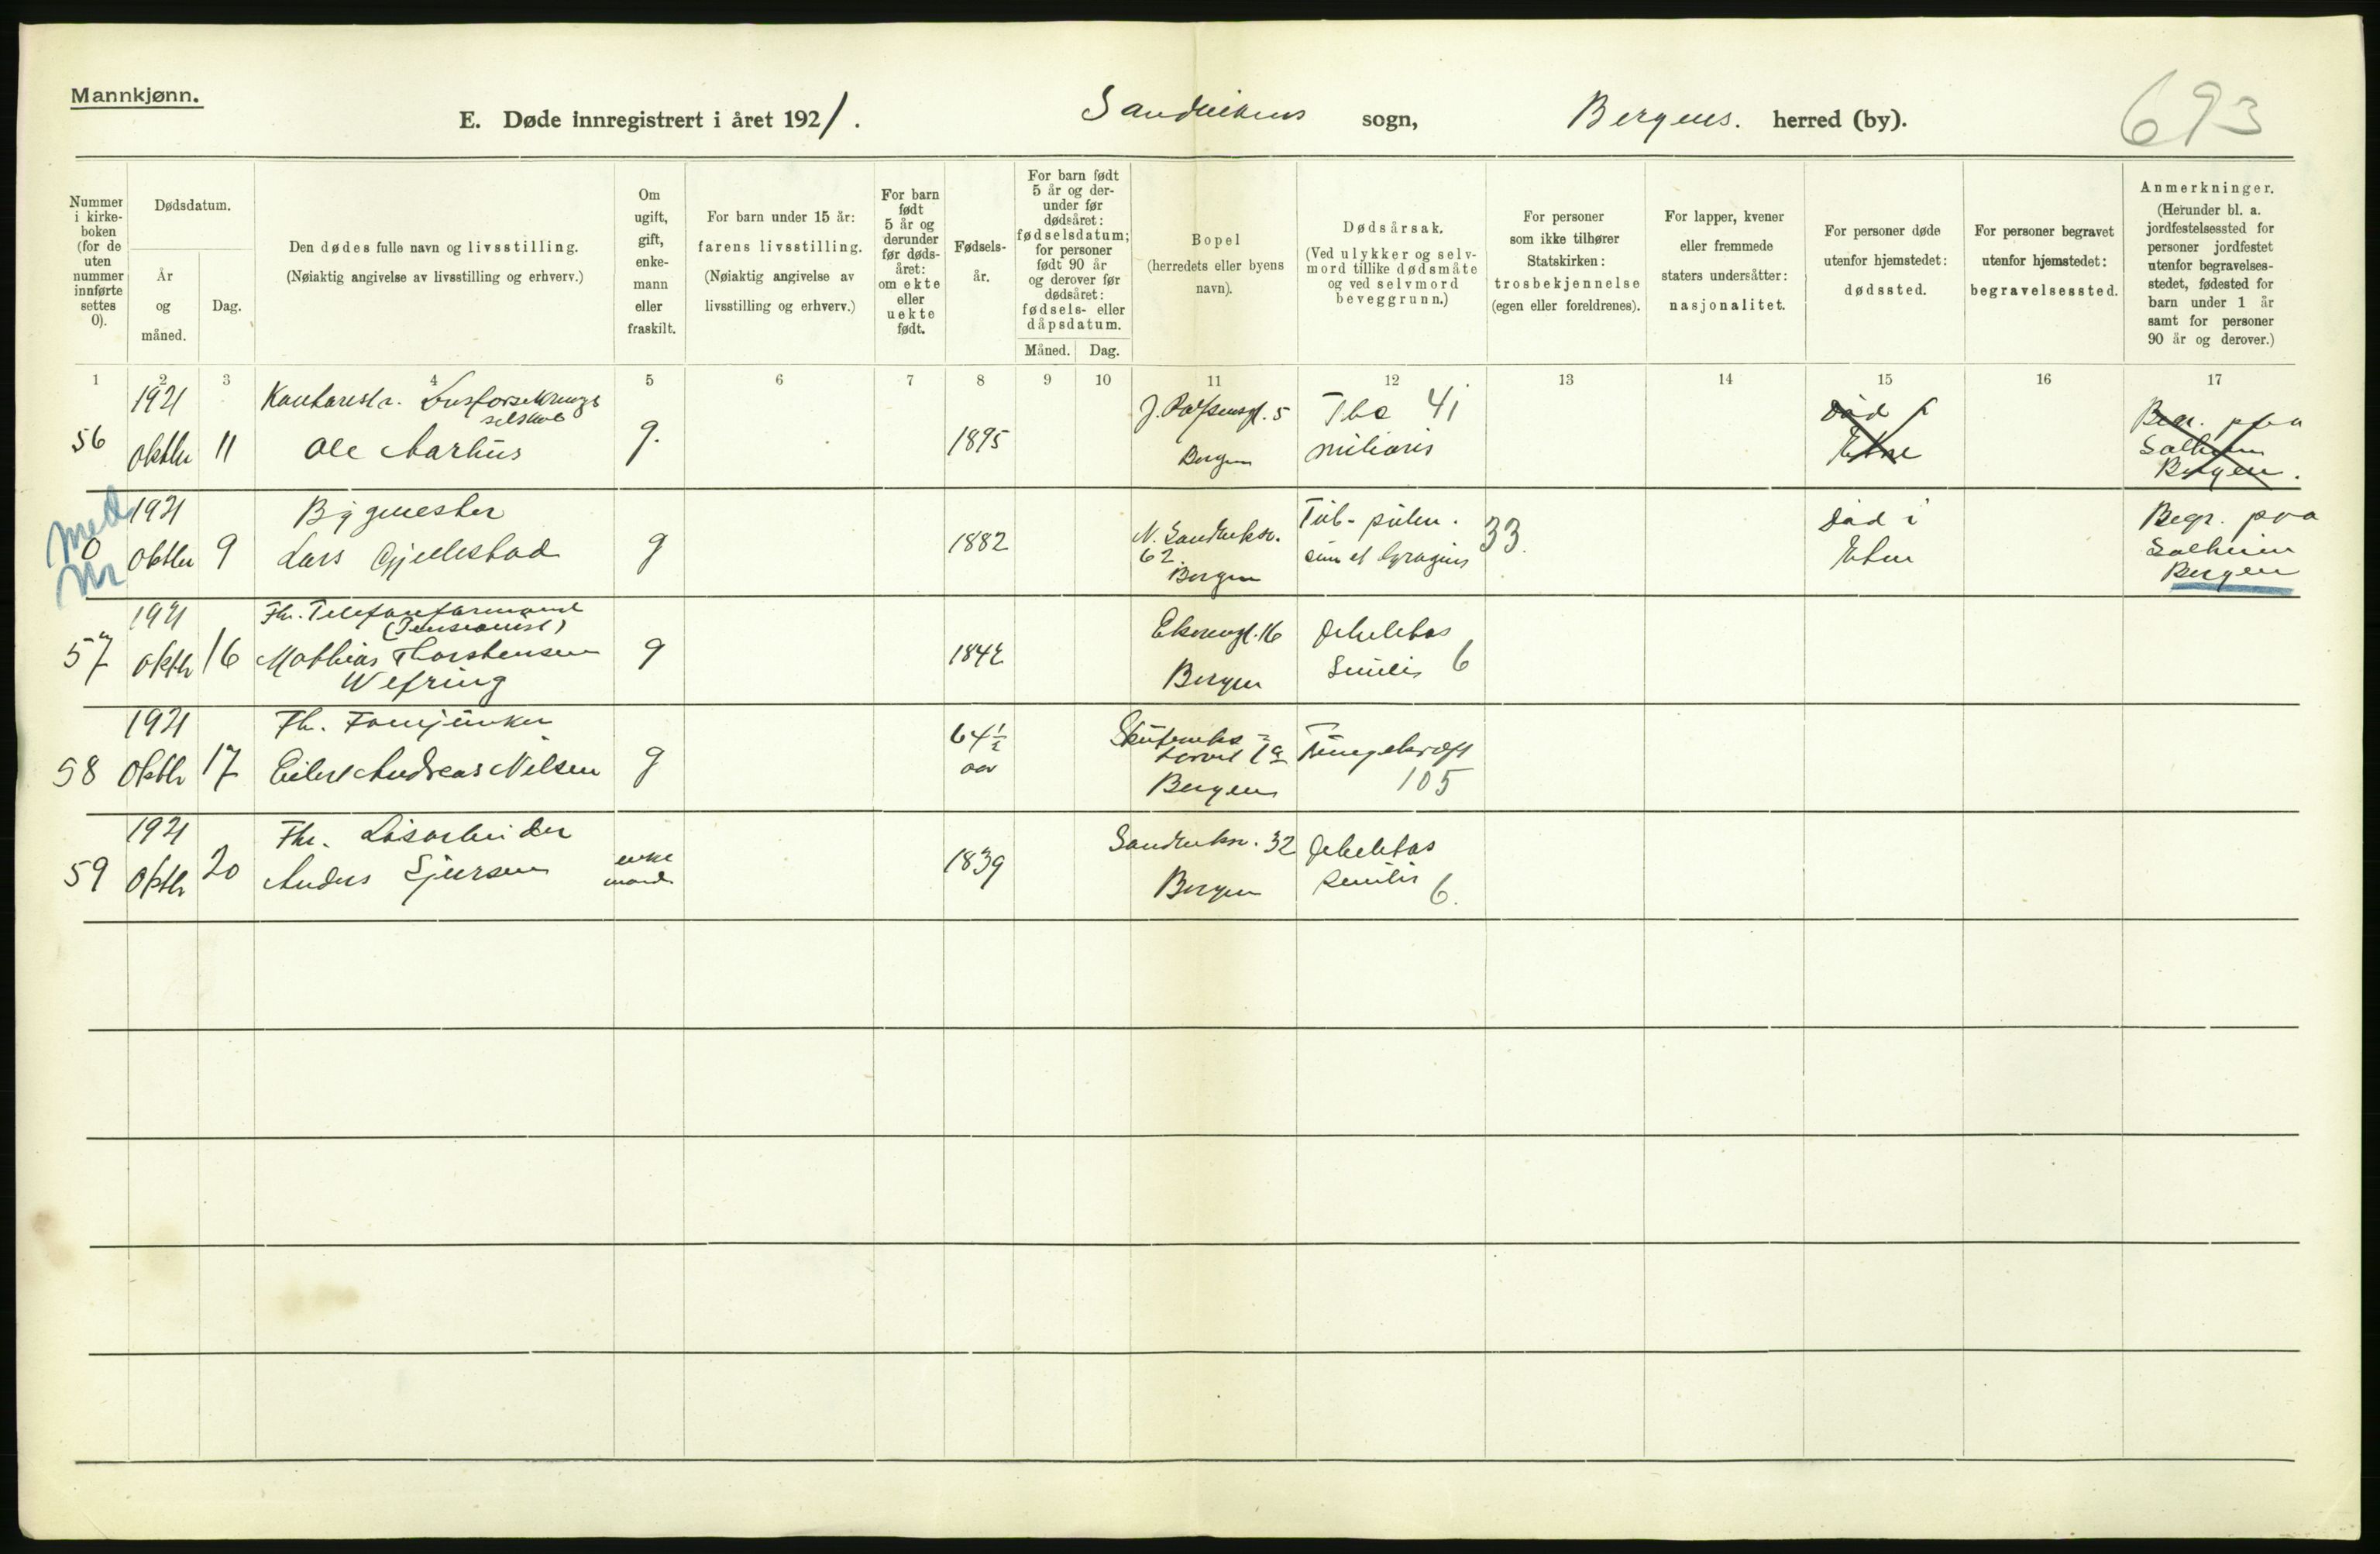 Mannkjønn.
E. Døde innregistrert i året 1921. Sandvikens sogn, Bergens. herred (by).
693
Nummer
i kirke-
boken
(for de
uten
nummer
innførte
settes
0).
Dødsdatum.
År
og
måned.
Dag.
Den dødes fulle navn og livsstilling.
(Nøiaktig angivelse av livsstilling og erhverv.)
Om
ugift,
gift,
enke-
mann
eller
fraskilt.
For barn under 15 år:
farens livsstilling.
(Nøiaktig angivelse av
livsstilling og erhverv.)
For barn
født
5 år og
derunder
før døds-
året:
om ekte
eller
uekte
født.
Fødsels-
år.
For barn født
5 år og der-
under før
dødsåret:
fødselsdatum;
for personer
født 90 år
og derover før
dødsåret:
fødsels- eller
dåpsdatum.
Måned. Dag.
Bopel
(herredets eller byens
navn).
Dødsårsak.
(Ved ulykker og selv-
mord tillike dødsmåte
og ved selvmord
beveggrunn.)
For personer
som ikke tilhører
Statskirken:
trosbekjennelse
(egen eller foreldrenes).
For lapper, kvener
eller fremmede
staters undersåtter:
nasjonalitet.
For personer døde
utenfor hjemstedet:
dødssted.
For personer begravet
utenfor hjemstedet:
begravelsessted.
Anmerkninger.
(Herunder bl. a.
jordfestelsessted for
personer jordfestet
utenfor begravelses-
stedet, fødested for
barn under 1 år
samt for personer
90 år og derover.)
1 2 3 4 5 6 7 8 9 10 11 12 13 14 15 16 17
56
1921
oktbr 11
selskab
Ole Aarhus
g.
1895
5
Bergen
Tbc 41
miliaris
Død i
Etne
Begr. paa
Solheim
Bergen.
med
0
Nr
1921
Oktbr 9
Bygmester
Lars Gjellestad
g
1882
N. Sandviksv.
62.
Bergen
Tub. pulm.
33.
død i
Etne
Begr. paa
Solheim
Bergen
57
1921
oktbr 16
(Pensionist)
Mathias Thorstensen
Wefring
g
1842
16
Bergen
Debilitas
Senilis 6
58
1921
Oktbr 17
Fhr. Fourjunker
Eilert Andreas Nilsen
g
64½
aar
torvet 1a
Bergen
105
59
1921
Oktbr 20
Fhr. Løsarbeider
Anders Sjursen
enke
mand
1839
Sandviksv. 32
Bergen
Debilitas
senilis
6.